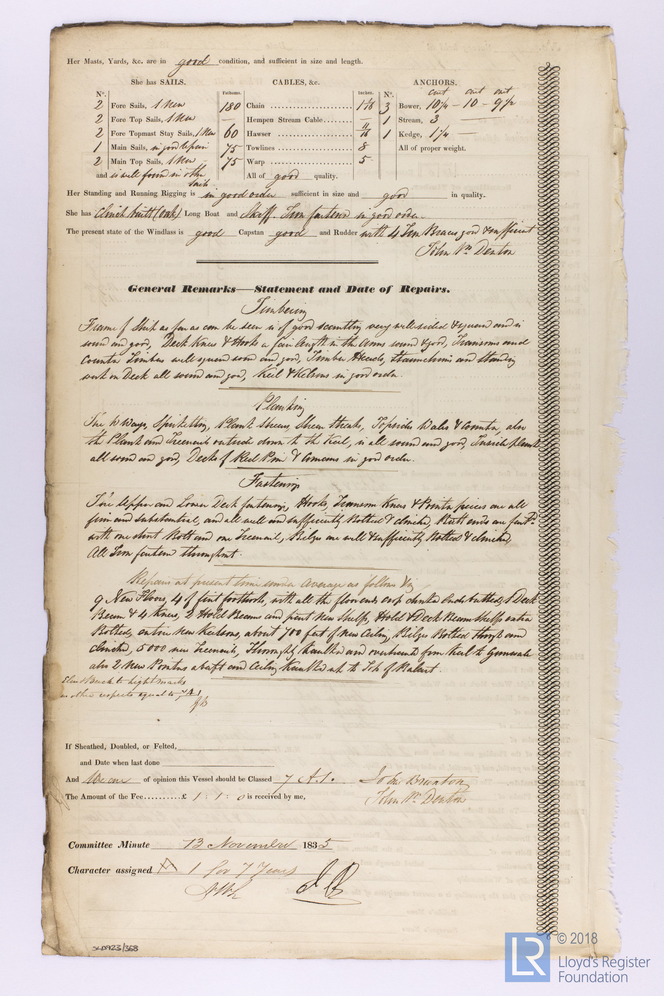 Her Masts, Yards, &c. are in good condition, and sufficient in size and length.
She has SAILS.
CABLES, &c.
ANCHORS.
Nº.
2 Fore Sails, 1 New
2 Fore Top Sails,
2 Fore Topmast Stay Sails, 1 New
1 Main Sails, in good repair
2 Main Top Sails, 1 New
and is well found in other Sails
Fathoms.
Inches.
180 Chain 1 1/16
Hempen Stream Cable
60 Hawser
75 Towlines 8
75 Warp 5
All of good quality.
Nº. cwt cwt cwt
3 Bower, 10 1/4 - 10 - 9 1/2
1 Stream, 3
1 Kedge, 1 1/4
All of proper weight.
Her Standing and Running Rigging is in good order sufficient in size and good in quality.
She has Clinch built (Oak) Long Boat and Skiff. Iron fastened in good order.
The present state of the Windlass is good Capstan good and Rudder with 4 Iron Braces good & sufficient
John Wm Denton
General Remarks—Statement and Date of Repairs.
Timbering
Frame of Ship as far as can be seen is of good scantling very well sided & square and is
sound and good, Deck Knees & Hooks a fair length in the arms sound & good, Transoms and
Counter Timbers well squared sound and good, Timber Heads, Staunchions and Standing
work on Deck all sound and good, Keel & Kelsons in good order.
Planking
The W Ways, Spirketting, Plank Sheers, Sheer Streaks, Topsides Wales & Counter, also
the Plank and Treenails outside down to the Keel, is all sound and good, Inside plank
all sound and good, Decks of Red Pine & Comeons in good order.
Fastening
The Upper and Lower Deck fastening, Hooks, Transom Knees & Pointer pieces are all
firm and substantial, and all well and sufficiently Bolted & clinched, Butt ends are fastd
with one short Bolt and one Treenail, Bilges are well & sufficiently Bolted & clinched,
All Iron fastened throughout.
Repairs at present time under Average as follows Viz
9 New Floors, 4 of first foothooks, with all the floor ends and 1 Deck
Beam & 4 Knees, 2 Hold Beams and part new Shelfs, Hold & Deck Beam Shelfs extra
Bolted, entire New Kelsons, about 700 feet of new Ceiling, Bilges Bolted through and
clinched, 5000 new Treenails, Thoroughly Caulked and overhauled from Keel to Gunwale
also 2 New Pointers abaft and Ceiling Caulked up to Top of Ballast.
to Light marks
in other respects equal to
If Sheathed, Doubled, or Felted,
and Date when last done
And We are of opinion this Vessel should be Classed 7 A.1. John Brunton
The Amount of the Fee..........£ 1 : 1 : 0 is received by me, John Wm Denton
Committee Minute 13 November 1835
Character assigned A 1 for 7 Years
SLD923/358
LR
© 2018
Lloyd's Register
Foundation